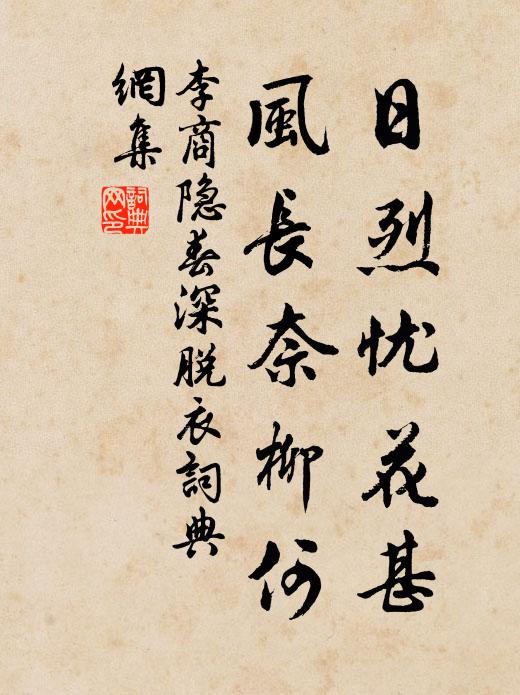 日烈忧花甚
風長奈柳何
李商隐春深脱衣詞典
網集
詞典
网印